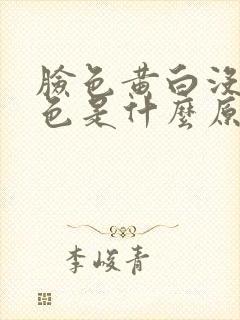 臉色黃白沒
色是什麼原
李峻青